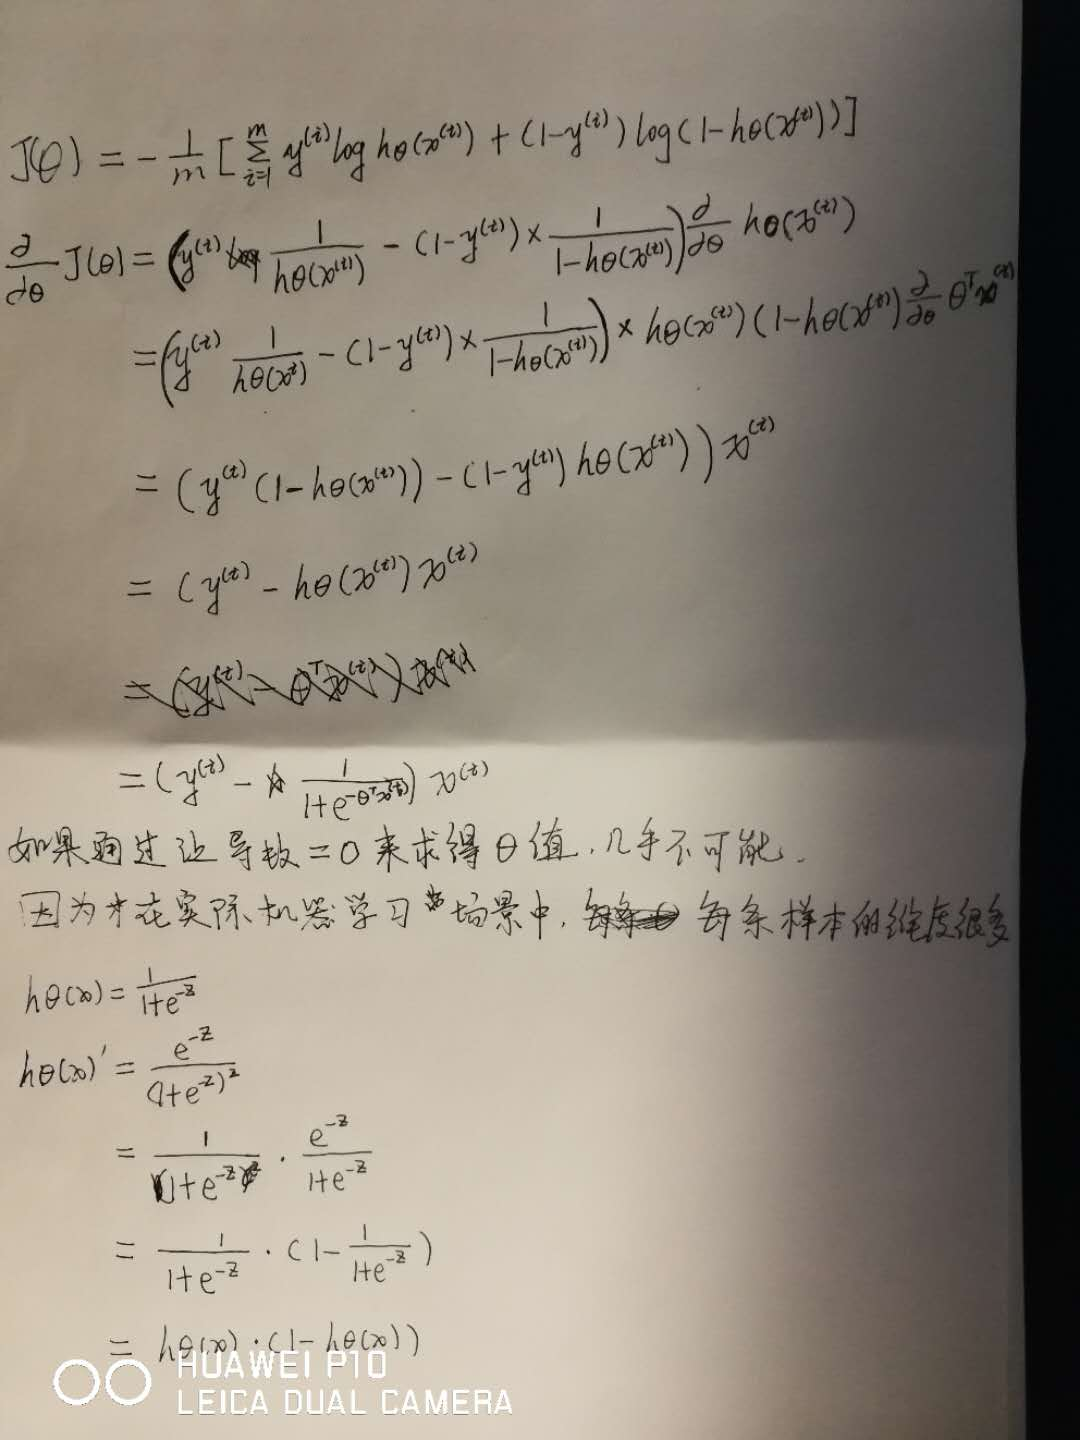 J(θ) = - 1/m [ Σ_{i=1}^{m} y^(i) log hθ(x^(i)) + (1-y^(i)) log(1-hθ(x^(i))) ]
∂/∂θ J(θ) = (y^(i) 1/hθ(x^(i)) - (1-y^(i)) × 1/(1-hθ(x^(i)))) ∂/∂θ hθ(x^(i))
= (y^(i) 1/hθ(x^i) - (1-y^(i)) × 1/(1-hθ(x^(i)))) × hθ(x^(i)) (1-hθ(x^(i)) ∂/∂θ θ^T x^(i)
= (y^(i) (1-hθ(x^(i))) - (1-y^(i)) hθ(x^(i))) x^(i)
= (y^(i) - hθ(x^(i)) x^(i)
= (y^(i) - θ^T x^(i)) x^(i)
= (y^(i) - 1/(1+e^{-θ^T x^(i)})) x^(i)
如果通过让导数=0来求得θ值,几乎不可能.
因为在实际机器学习场景中,每条样本的维度很多
hθ(x) = 1/(1+e^{-z})
hθ(x)' = e^{-z}/(1+e^{-z})^2
= 1/(1+e^{-z}) · e^{-z}/(1+e^{-z})
= 1/(1+e^{-z}) · (1 - 1/(1+e^{-z}))
= hθ(x) · (1-hθ(x))
HUAWEI P10
LEICA DUAL CAMERA